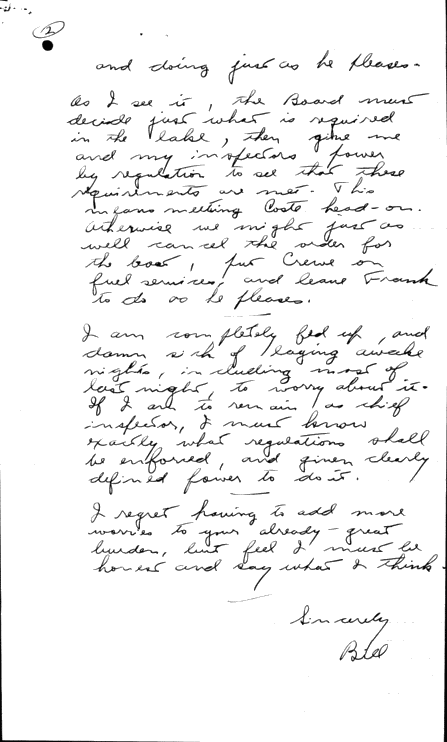 (2)
and doing just as he pleases.
As I see it, the Board must
decide just what is required
in the lake, then give me
and my inspectors power
by regulation to see that these
requirements are met. This
means meeting Coste head-on.
Otherwise we might just as
well cancel the order for
the boat, put Crewe on
fuel services, and leave Frank
to do as he pleases.
I am completely fed up, and
damn sick of laying awake
nights, including most of
last night, to worry about it.
If I am to remain as chief
inspector, I must know
exactly what regulations shall
be enforced, and given clearly
defined power to do it.
I regret having to add more
worries to your already-great
burden, but feel I must be
honest and say what I think.
Sincerely
Bill